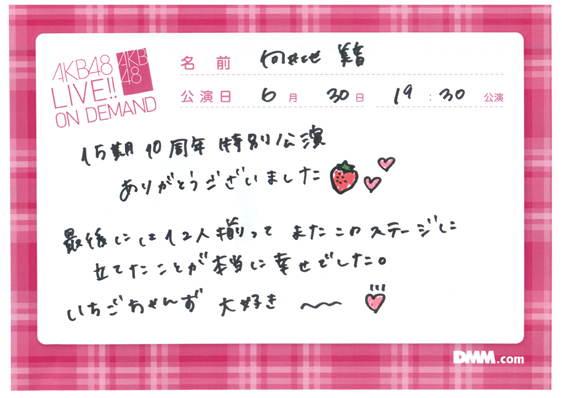 AKB48
LIVE!!
ON DEMAND
AKB
48
名 前
公演日 6 月 30 日 19 : 30 公演
15期10周年特別公演
ありがとうございました
最後には12人揃って またこのステージに
立てたことが本当に幸せでした。
いちごちゃんず 大好き 〜〜
DMM.com